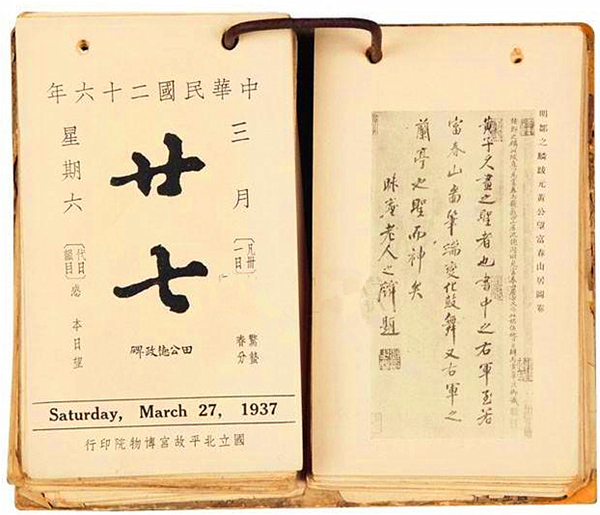 中華民國二十六年
三月
〔凡卅一日〕
驚蟄
春分
廿七
田公德政碑
星期六
〔代日韻目〕感 本日望
Saturday, March 27, 1937
國立北平故宮博物院印行
明鄒之麟跋元黃公望富春山居圖卷
黃子久畫之聖者也書中之右軍至若
富春山圖筆端變化鼓舞又右軍之
蘭亭也聖而神矣
昧菴老人之麟題